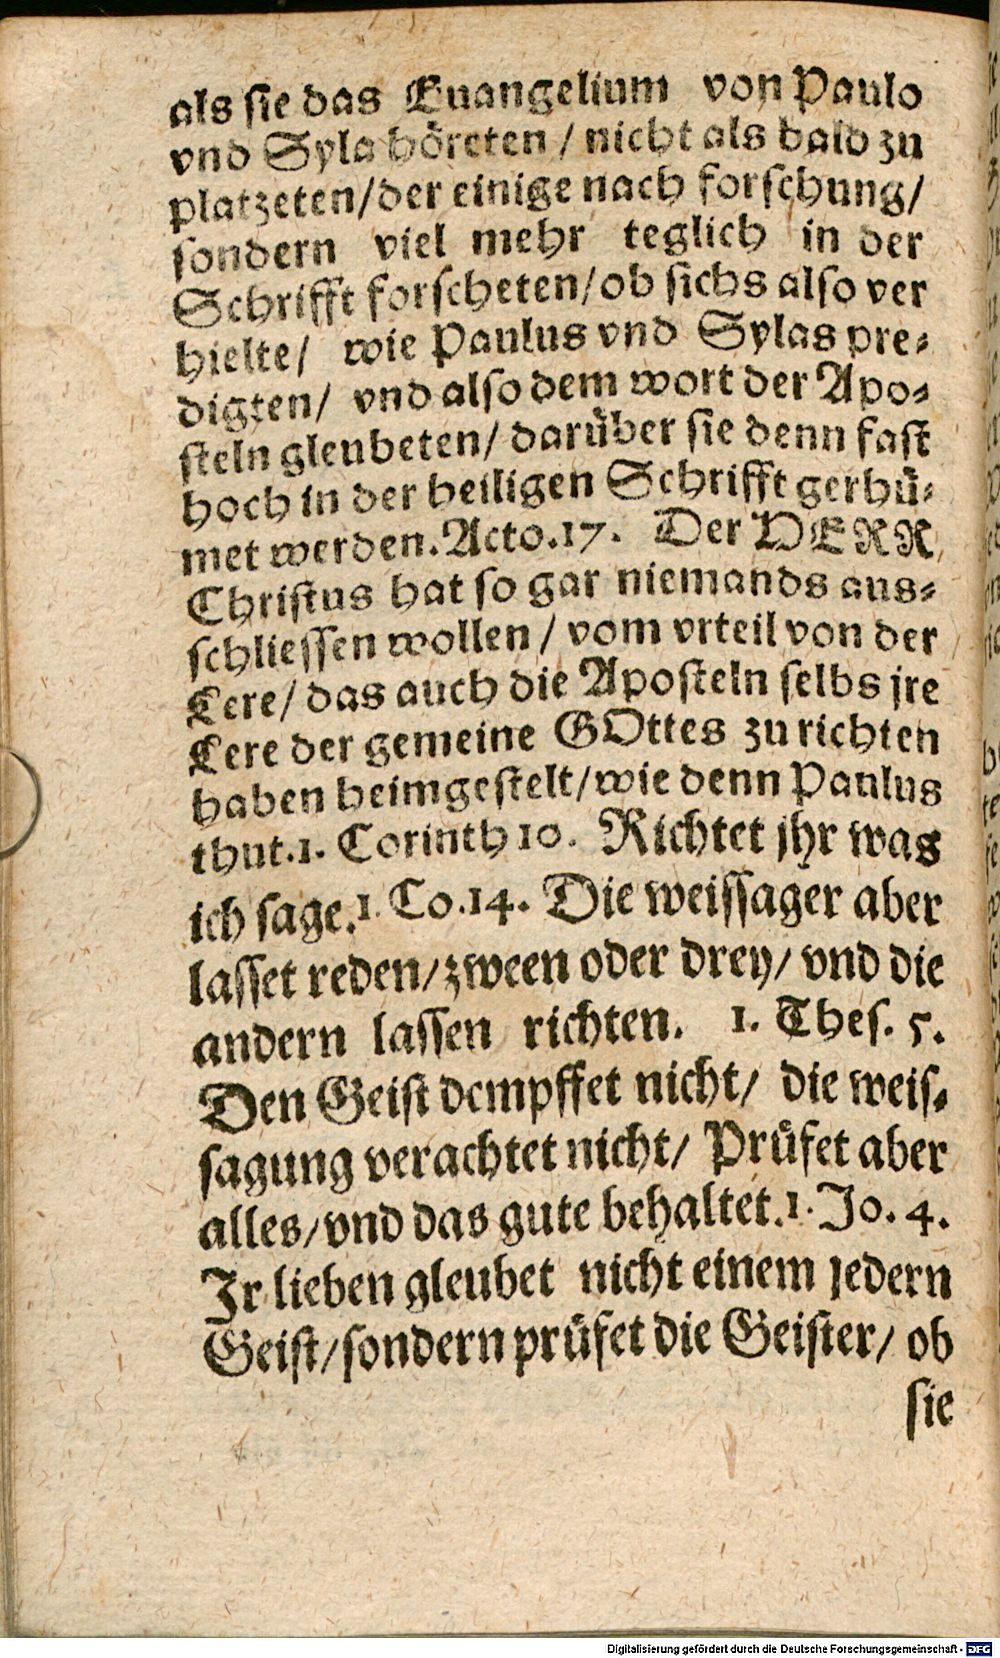 als sie das Euangelium von Paulo
vnd Syla höreten / nicht als bald zu
platzeten/der einige nach forschung/
sondern viel mehr teglich in der
Schrifft forscheten/ob sichs also ver
hielte/ wie Paulus vnd Sylas pre⸗
digten/ vnd also dem wort der Apo⸗
steln gleubeten/ darüber sie denn fast
hoch in der heiligen Schrifft gerhü⸗
met werden.Acto.17. Der HERR
Christus hat so gar niemands aus⸗
schliessen wollen / vom vrteil von der
Lere/ das auch die Aposteln selbs jre
Lere der gemeine GOttes zu richten
haben heimgestelt/wie denn Paulus
thut.1. Corinth 10. Richtet jhr was
ich sage.1. Co.14. Die weissager aber
lasset reden/zween oder drey/ vnd die
andern lassen richten. 1. Thes. 5.
Den Geist dempffet nicht/ die weis⸗
sagung verachtet nicht/ Prüfet aber
alles/vnd das gute behaltet.1. Jo. 4.
Jr lieben gleubet nicht einem jedern
Geist/sondern prüfet die Geister/ ob
sie
Digitalisierung gefördert durch die Deutsche Forschungsgemeinschaft - DFG